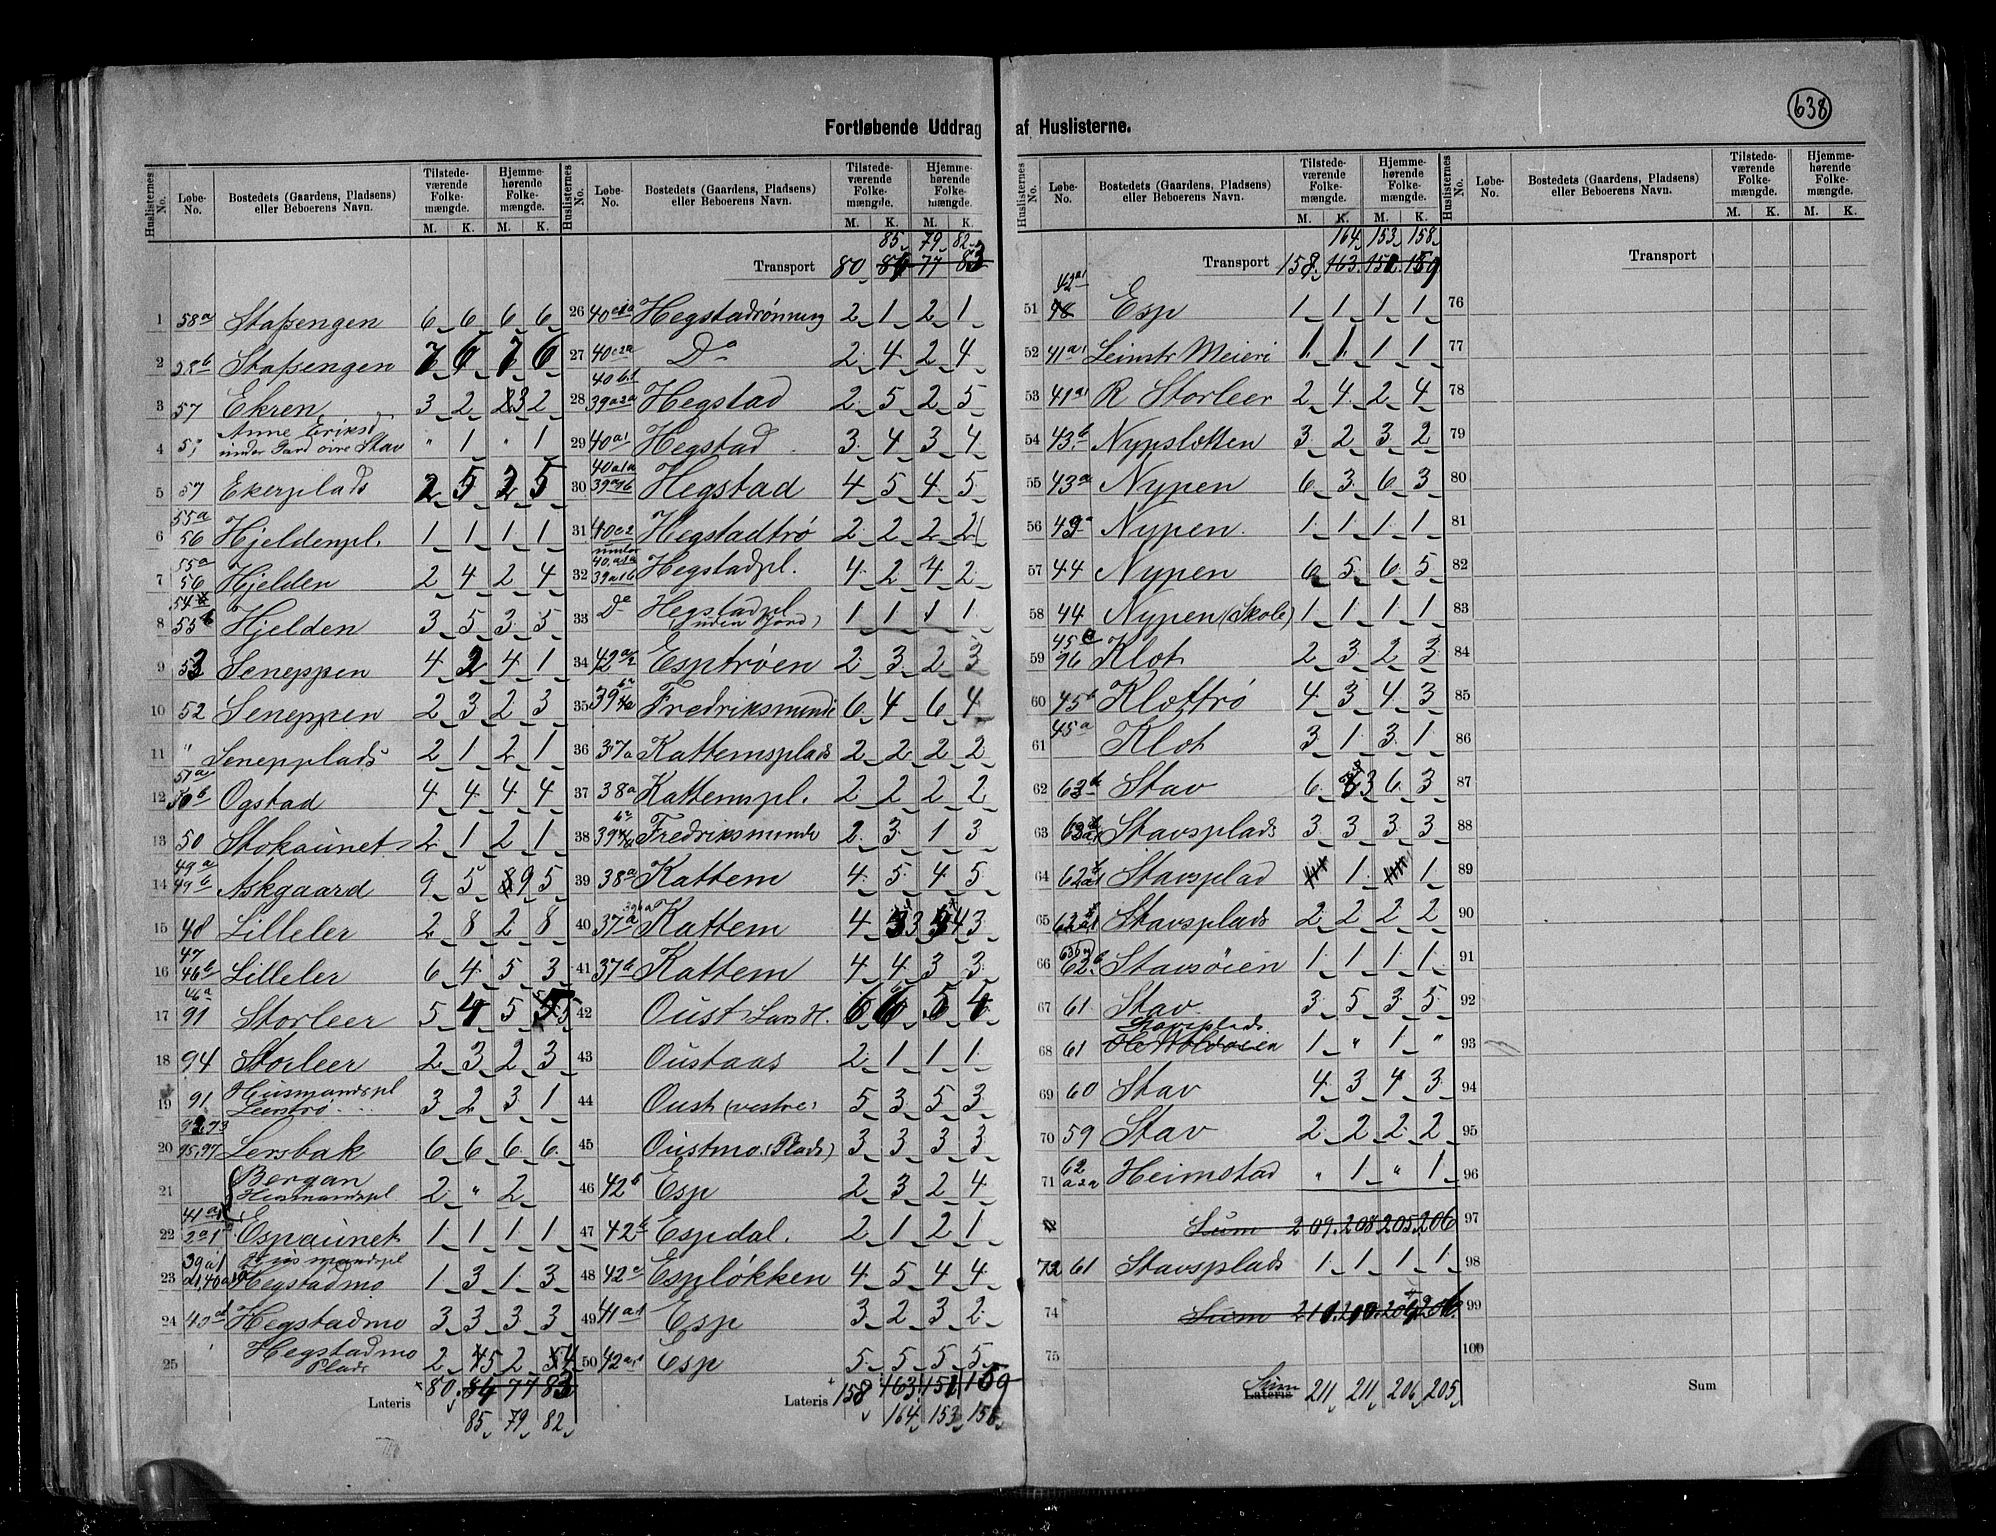 638
Fortløbende Uddrag af Huslisterne.
Huslisternes No. Løbe-No. Bostedets (Gaardens, Pladsens) eller Beboerens Navn. Tilstedeværende Folkemængde. M. K. Hjemmehørende Folkemængde. M. K.
1 58a Stafsengen 6 6 6 6
2 58b Stafsengen 7 6 7 6
3 57 Ekren 3 2 3 2
4 57 Anne Eriksd. under Gard øvre Stav " 1 " 1
5 57 Ekerplads 2 5 2 5
6 55a 56 Hjeldenpl. 1 1 1 1
7 55a 56 Hjelden 2 4 2 4
8 55b Hjelden 3 5 3 5
9 53 Seneppen 4 2 4 1
10 52 Seneppen 2 3 2 3
11 " Senepplads 2 1 2 1
12 51a 50b Ogstad 4 4 4 4
13 50 Stokaunet 2 1 2 1
14 49a 49b Askgaard 9 5 9 5
15 48 Lilleler 2 8 2 8
16 47 46b Lilleler 6 4 5 3
17 46a 91 Storleer 5 4 5 5
18 94 Storleer 2 3 2 3
19 91 Husmandspl Leerstrø 3 2 3 1
20 92,93 95,97 Lersbak 6 6 6 6
21 Bergan Husmandspl 2 " 2
22 41a1 Espaunet 1 1 1 1
23 39a1 Husmandspl Hegstadmo 1 3 1 3
24 40d Hegstadmo 3 3 3 3
25 Hegstadmo Plads 2 5 2 4
Lateris 80 84 77 83
85 79 82
85 79 82
Transport 80 86 77 83
26 40c1a Hegstadrønning 2 1 2 1
27 40c2a Do 2 4 2 4
28 40b1 39a2a Hegstad 2 5 2 5
29 40a1 Hegstad 3 4 3 4
30 40a1a 39a1b Hegstad 4 5 4 5
31 40c2 Hegstadtrø 2 2 2 2
32 under 40a1a 39a1b Hegstadpl. 4 2 4 2
33 Do Hegstadpl (uden Jord) 1 1 1 1
34 42a/2 Esptrøen 2 3 2 3
35 39 Fredriksminde 6 4 6 4
36 37a Kattemsplads 2 2 2 2
37 38a Kattemspl. 2 2 2 2
38 39 Fredriksminde 2 3 1 3
39 38a Kattem 4 5 4 5
40 37a 39ba Kattem 4 3 4 3
41 37b Kattem 4 4 3 3
42 Oust Lars H. 6 6 5 4
43 Oustaas 2 1 1 1
44 Oust (vestre) 5 3 5 3
45 Oustmo (Plads) 3 3 3 3
46 42b Esp 2 3 2 4
47 42b Espdal. 2 1 2 1
48 42c Espløkken 4 5 4 4
49 41a1 Esp 3 2 3 2
50 42a1 Esp 5 5 5 5
Lateris 158 163 151 159
164 153 158
164 153 158
Transport 158 163 151 159
51 42a1 Esp 1 1 1 1
52 41a1 Leinstr Meieri 1 1 1 1
53 41a1 R Storleer 2 4 2 4
54 43b Nypslotten 3 2 3 2
55 43a Nypen 6 3 6 3
56 43a Nypen. 1 1 1 1
57 44 Nypen 6 5 6 5
58 44 Nypen (Skole) 1 1 1 1
59 45 96 Klot 2 3 2 3
60 45b Klottrø 4 3 4 3
61 45a Klot 3 1 3 1
62 63b Stav 6 3 6 3
63 Stavsplads 3 3 3 3
64 62a1 Stavsplad 1 1
65 62a1 Stavsplads 2 2 2 2
66 62b Stavsøien 1 1 1 1
67 61 Stav 3 5 3 5
68 61 Stavsplads 1 " 1 "
69 60 Stav 4 3 4 3
70 59 Stav 2 2 2 2
71 62 a2a Heimstad " 1 " 1
Sum 209 208 205 206
72 61 Stavsplads 1 1 1 1
74 Sum 210
75
Sum Lateris 211 211 206 205
Transport
76
77
78
79
80
81
82
83
84
85
86
87
88
89
90
91
92
93
94
95
96
97
98
99
100
Sum